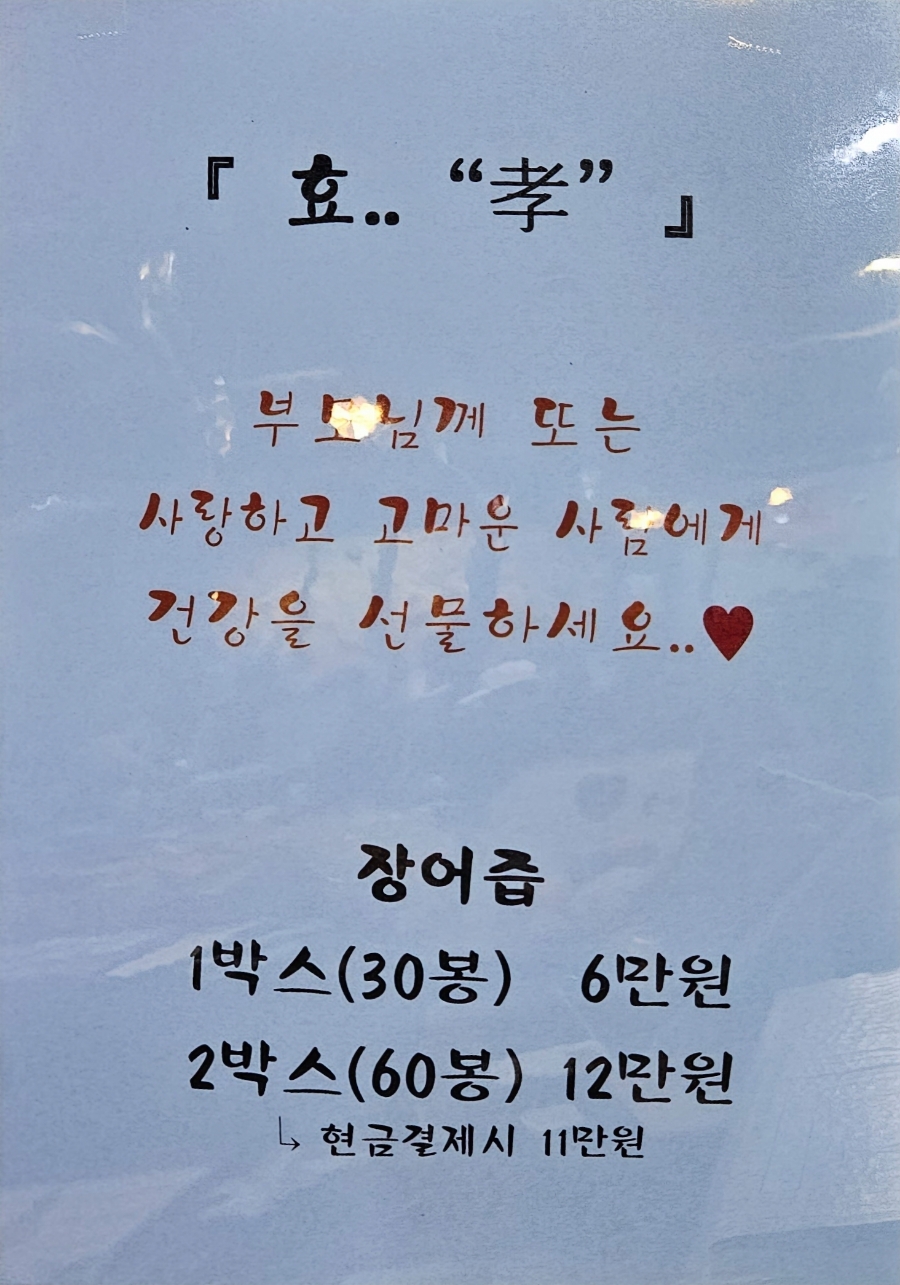 『 효.. “孝” 』
부모님께 또는
사랑하고 고마운 사람에게
건강을 선물하세요..♥
장어즙
1박스(30봉) 6만원
2박스(60봉) 12만원
↳ 현금결제시 11만원